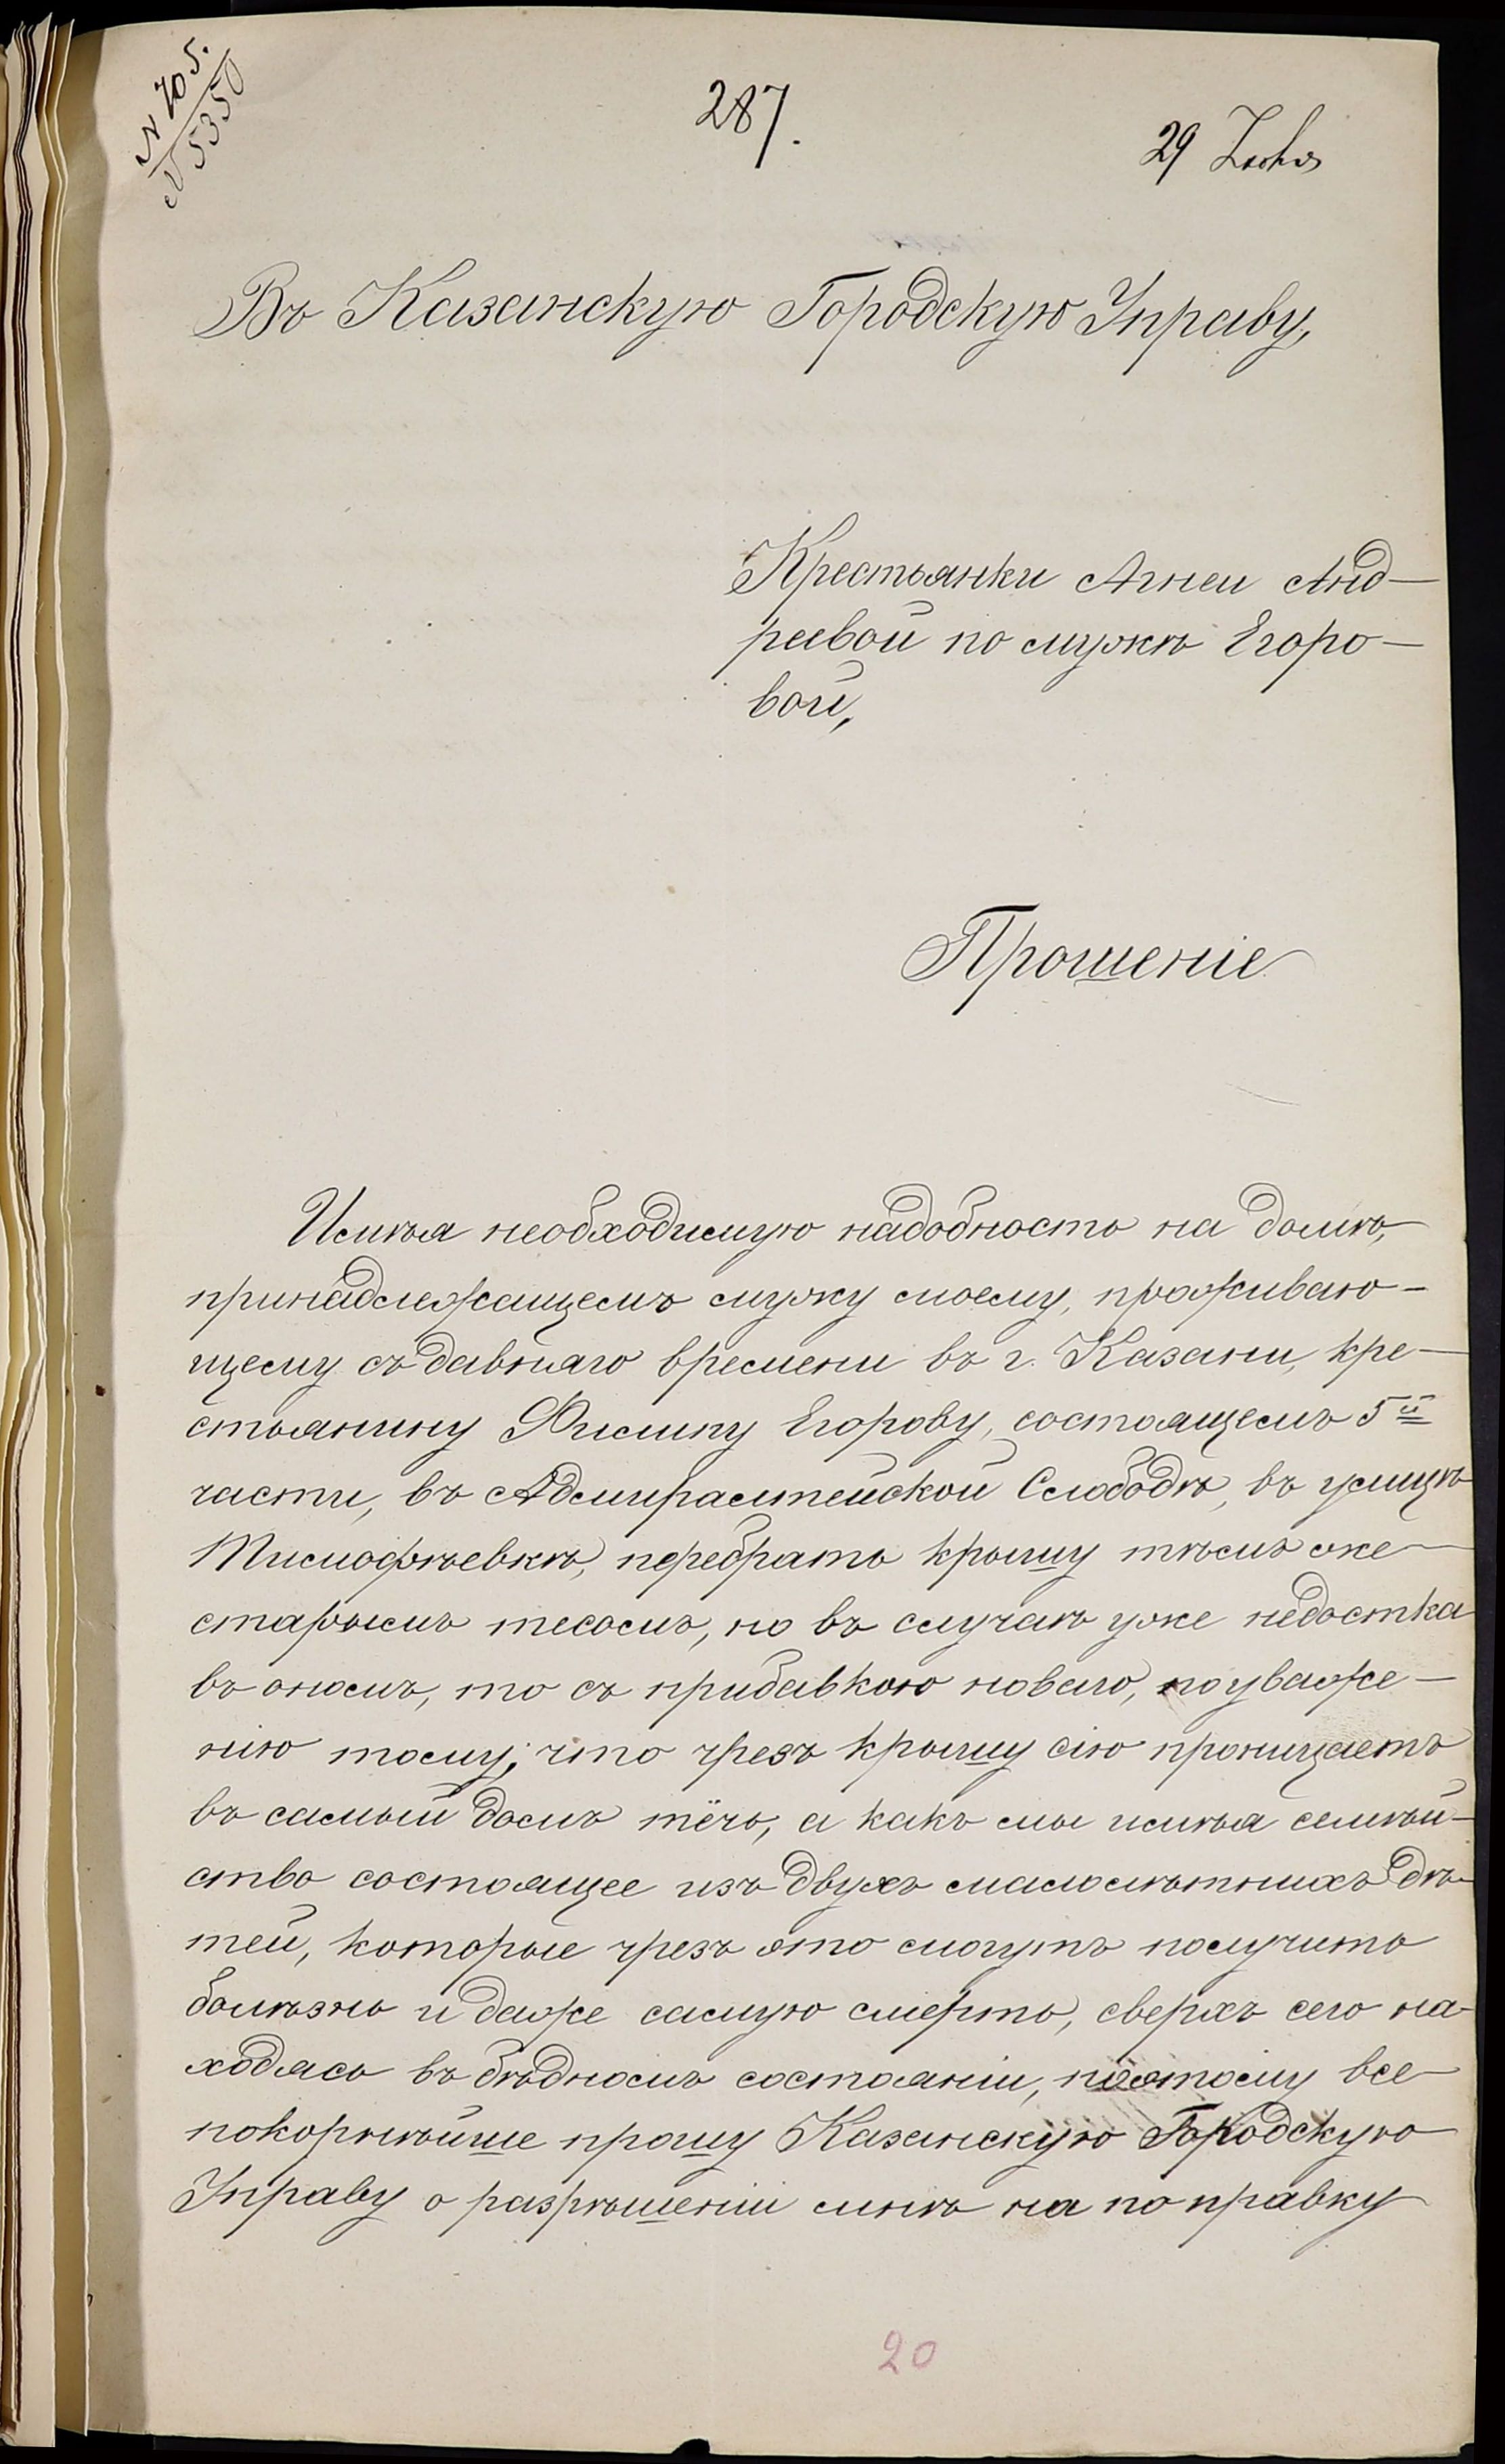 N 705.
N 5350
287.
29
Въ Казанскую Городскую Управу,
Крестьянки Агнеи Анд-
реевой по мужѣ Егоро-
вой,
Прошеніе
Имѣя необходимую надобность на домѣ,
принадлежащемъ мужу моему, проживаю-
щему съ давняго времени въ г. Казани, кре-
стьянину Филипу Егорову, состоящемъ 5й
части, въ Адмиралтейской Слободѣ, въ улицѣ
Тимофѣевкѣ, перебрать крышу тѣмъ же
старымъ тесомъ, но въ случаѣ уже недостка
въ ономъ, то съ прибавкою новаго, по уваже-
нію тому, что чрезъ крышу сію проницаетъ
въ самый домъ тёчь, а какъ мы имѣя семѣй-
ство состоящее изъ двухъ малолѣтнихъ дѣ-
тей, которые чрезъ это могутъ получить
болѣзнь и даже самую смерть, сверхъ сего на-
ходясь въ бѣдномъ состояніи, поэтому все-
покорнѣйше прошу Казанскую Городскую
Управу о разрѣшеніи мнѣ на поправку
20